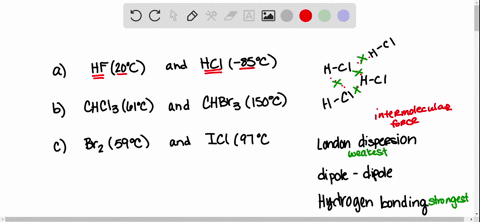 a) HF (20°C) and HCl (-85°C)
b) CHCl3 (61°C) and CHBr3 (150°C)
c) Br2 (59°C) and ICl (97°C
H-Cl
H-Cl
H-Cl
H-Cl
intermolecular
force
London dispersion
weakest
dipole - dipole
Hydrogen bonding strongest